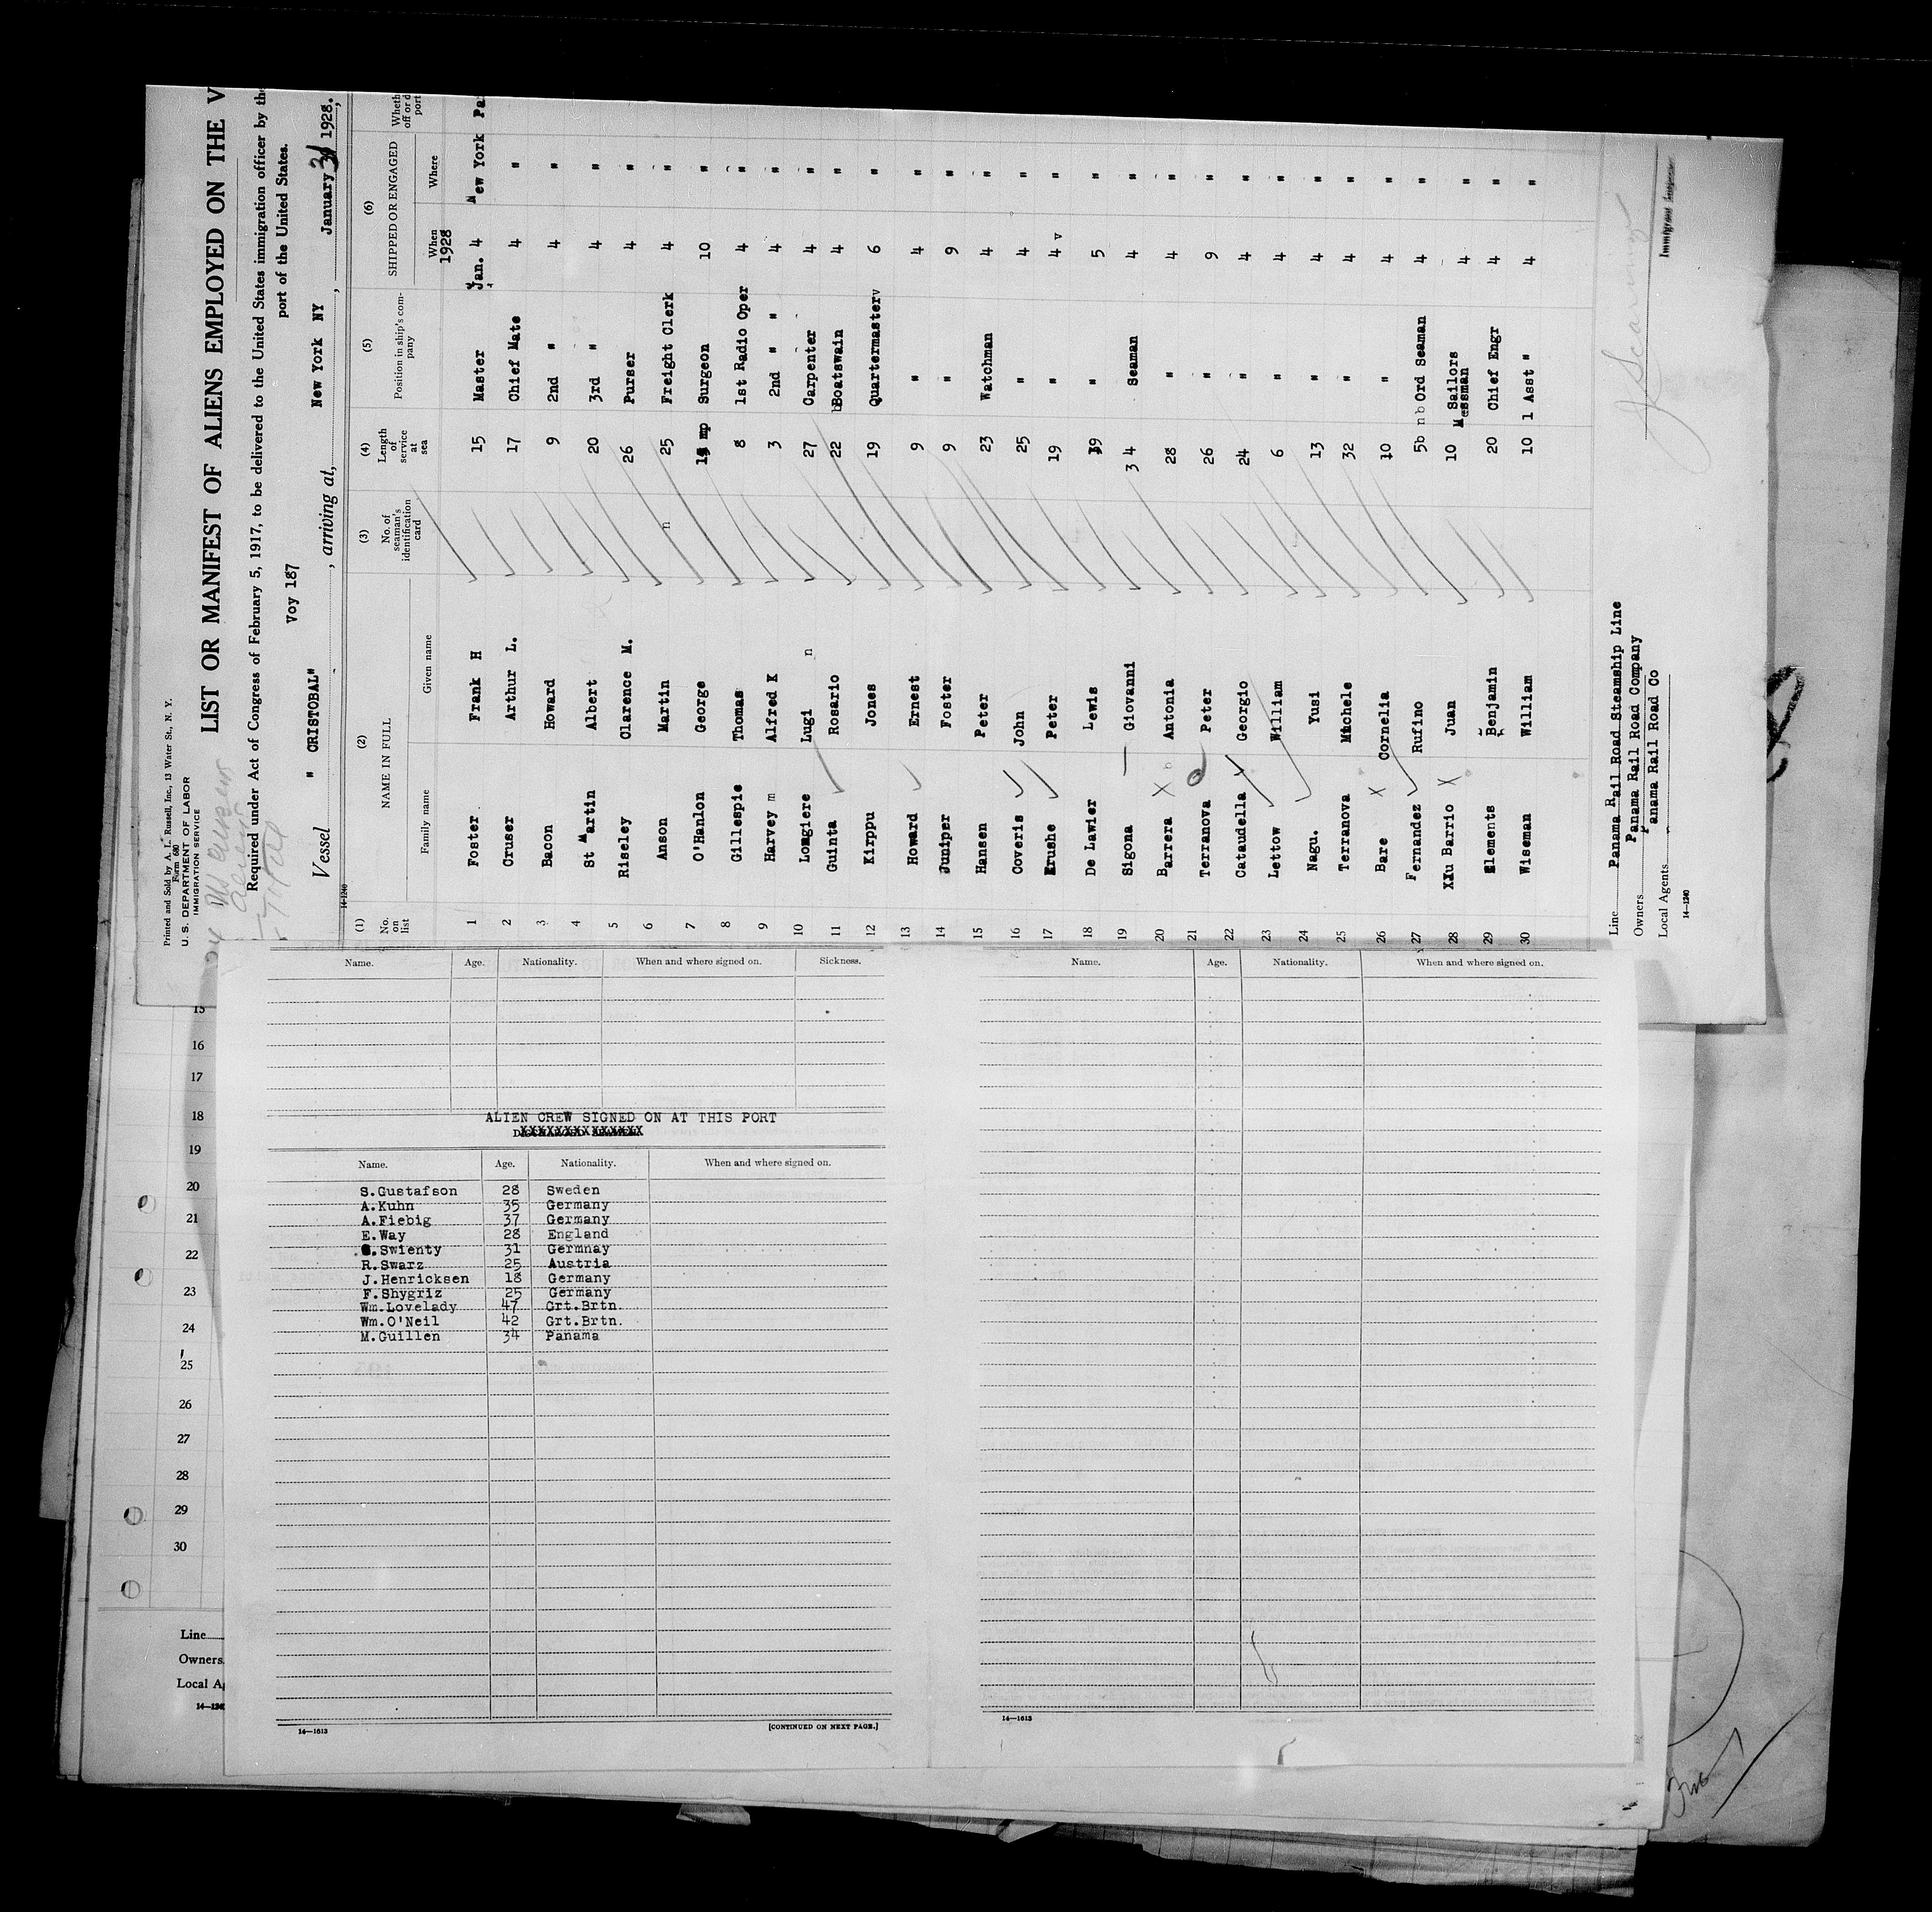 Printed and Sold by A. L. Russell, Inc., 13 Water St., N. Y.
Form 680
U. S. DEPARTMENT OF LABOR
IMMIGRATION SERVICE
LIST OR MANIFEST OF ALIENS EMPLOYED ON THE V
Required under Act of Congress of February 5, 1917, to be delivered to the United States immigration officer by the
port of the United States.
Voy 187
Vessel " CRISTOBAL" , arriving at, New York NY , January 31 1928.
14-1240
(1) (2) (3) (4) (5) (6)
No. on list NAME IN FULL No. of seaman's identification card Length of service at sea Position in ship's company SHIPPED OR ENGAGED Wheth off or d port
Family name Given name When Where
1928
1 Foster Frank H 15 Master Jan. 4 New York Pa
2 Cruser Arthur L. 17 Chief Mate 4 "
3 Bacon Howard 9 2nd " 4 "
4 St Martin Albert 20 3rd " 4 "
5 Riseley Clarence M. 26 Purser 4 "
6 Anson Martin 25 Freight Clerk 4 "
7 O'Hanlon George mp Surgeon 10 "
8 Gillespie Thomas 8 1st Radio Oper 4 "
9 Harvey m Alfred K 3 2nd " " 4 "
10 Longiere Lugi n 27 Carpenter 4 "
11 Guinta Rosario 22 Boatswain 4 "
12 Kirppu Jones 19 Quartermaster 6 "
13 Howard Ernest 9 " 4 "
14 Juniper Foster 9 " 9 "
15 Hansen Peter 23 Watchman 4 "
16 Coveris John 25 " 4 "
17 Krushe Peter 19 " 4 v "
18 De Lawier Lewis 39 " 5 "
19 Sigona Giovanni 3 4 Seaman 4 "
20 Barrera X Antonia 28 " 4 "
21 Terranova Peter 26 " 9 "
22 Cataudella Georgio 24 " 4 "
23 Lettow William 6 " 4 "
24 Nagu. Yusi 13 " 4 "
25 Terranova Michele 32 " 4 "
26 Bare X Cornelia 10 " 4 "
27 Fernandez Rufino 5b n b Ord Seaman 4 "
28 XXu Barrio X Juan 10 Sailors Messman 4 "
29 Clements Benjamin 20 Chief Engr 4 "
30 Wiseman William 10 1 Asst " 4 "
Line Panama Rail Road Steamship Line
Owners Panama Rail Road Company
Local Agents Panama Rail Road Co
14-1240
Immigrant Inspector
Name. Age. Nationality. When and where signed on. Sickness.
ALIEN CREW SIGNED ON AT THIS PORT
XXXXXXXXXXXXXXX
Name. Age. Nationality. When and where signed on.
S.Gustafson 28 Sweden
A.Kuhn 35 Germany
A.Fiebig 37 Germany
E.Way 28 England
.Swienty 31 Germnay
R.Swarz 25 Austria
J.Henricksen 18 Germany
F.Shygriz 25 Germany
Wm.Lovelady 47 Grt.Brtn.
Wm.O'Neil 42 Grt.Brtn.
M.Guillen 34 Panama
14—1613
[CONTINUED ON NEXT PAGE.]
Name. Age. Nationality. When and where signed on.
14—1613
15
16
17
18
19
20
21
22
23
24
25
26
27
28
29
30
Line
Owners
Local A
14—124